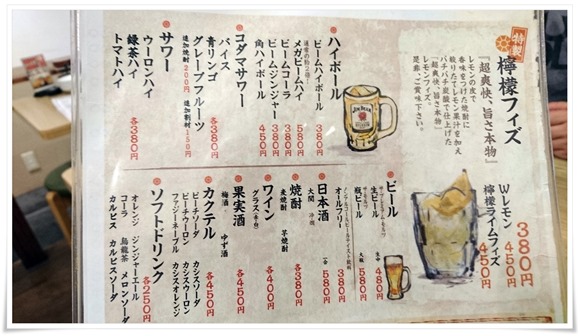 特製
檸檬フィズ
『超爽快、旨さ本物』
レモンの皮で
香味づけした焼酎に
絞りたてレモン果汁を加え
パチパチ炭酸で仕上げた
『超爽快、旨さ本物』
レモンフィズ。
是非、ご賞味下さい。
380円
Wレモン 450円
檸檬ライムフィズ 450円
ハイボール
JIM BEAM
ビームハイボール 380円
メガビームハイ 580円
ビームコーラ 380円
ビームジンジャー 380円
角ハイボール 450円
コダマサワー
バイス
青リンゴ
グレープフルーツ
各380円
追加焼酎 200円 追加割材 150円
サワー
ウーロンハイ
緑茶ハイ
トマトハイ
各380円
ビール
生ビール 480円
瓶ビール 大瓶 580円
オールフリー 380円
日本酒
大関 一合 380円
焼酎
麦焼酎 芋焼酎 各380円
ワイン
グラス(赤・白) 各400円
果実酒
梅酒 ゆず酒 各450円
カクテル
ピーチソーダ カシスソーダ
ピーチウーロン カシスウーロン
ファジーネーブル カシスオレンジ
各450円
ソフトドリンク
オレンジ ジンジャーエール
コーラ 烏龍茶 メロンソーダ
カルピス カルピスソーダ
各250円